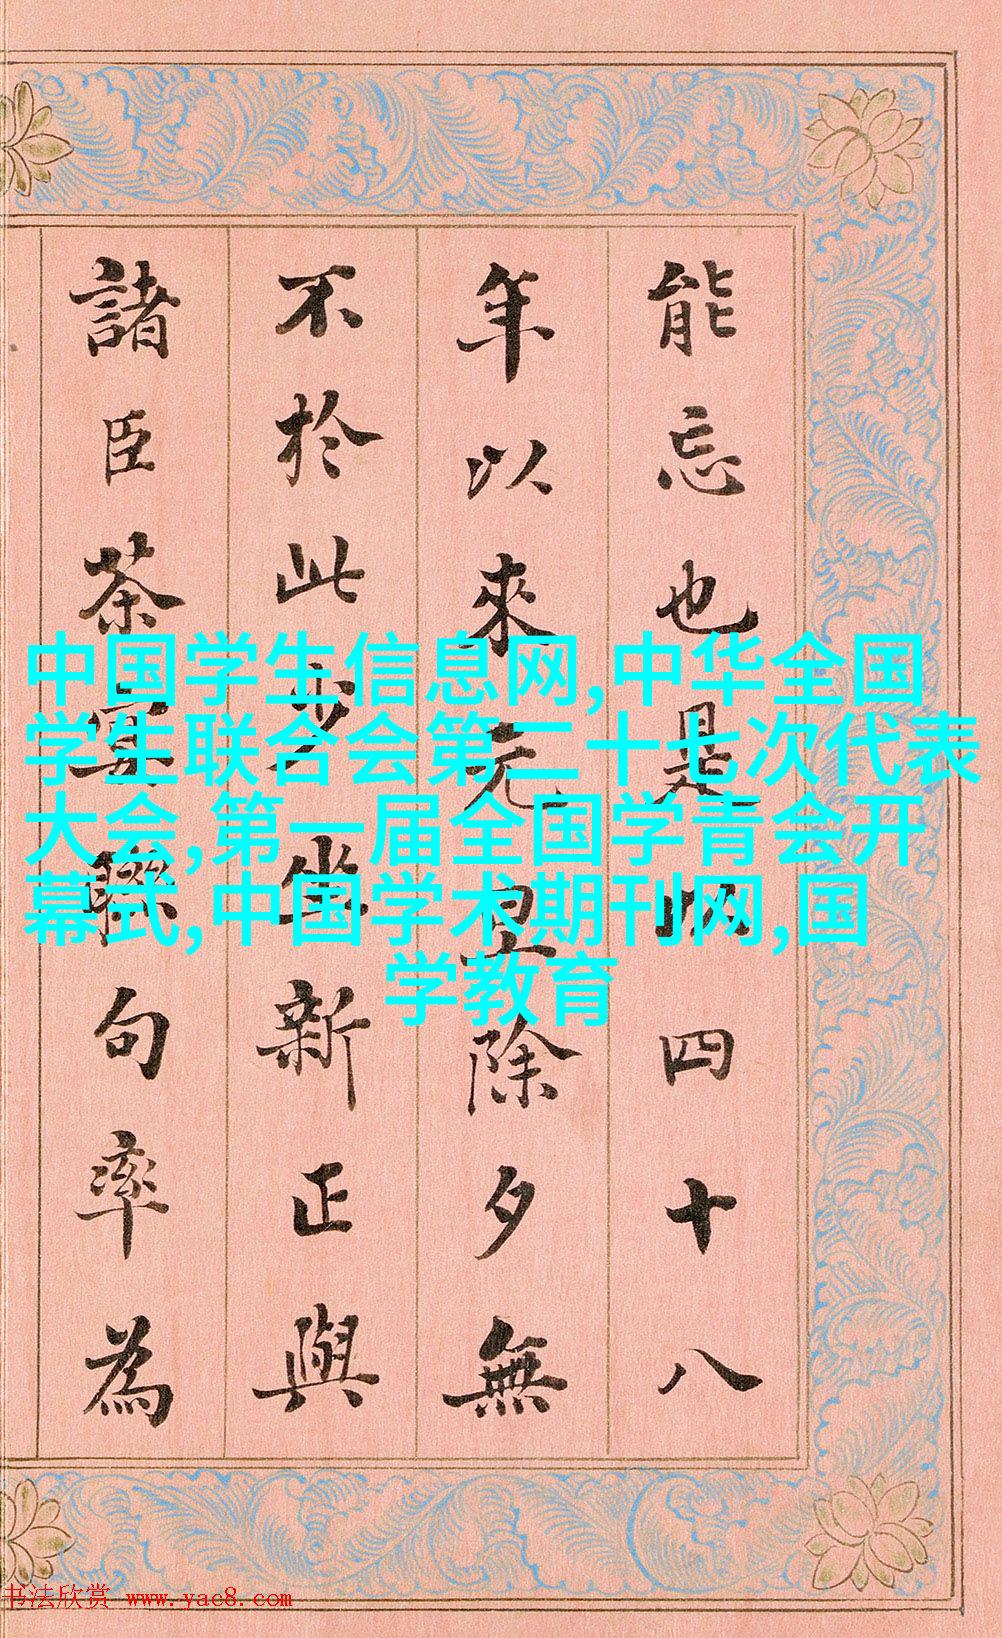 能忘也是以四十八
年以來元旦除夕無
不於此少坐新正與
諸臣茶宴聯句率為
中国学生信息网,中华全国
学生联合会第二十七次代表
大会,第一届全国学青会开
幕式,中国学术期刊网,国
学教育
书法欣赏 www.yac8.com